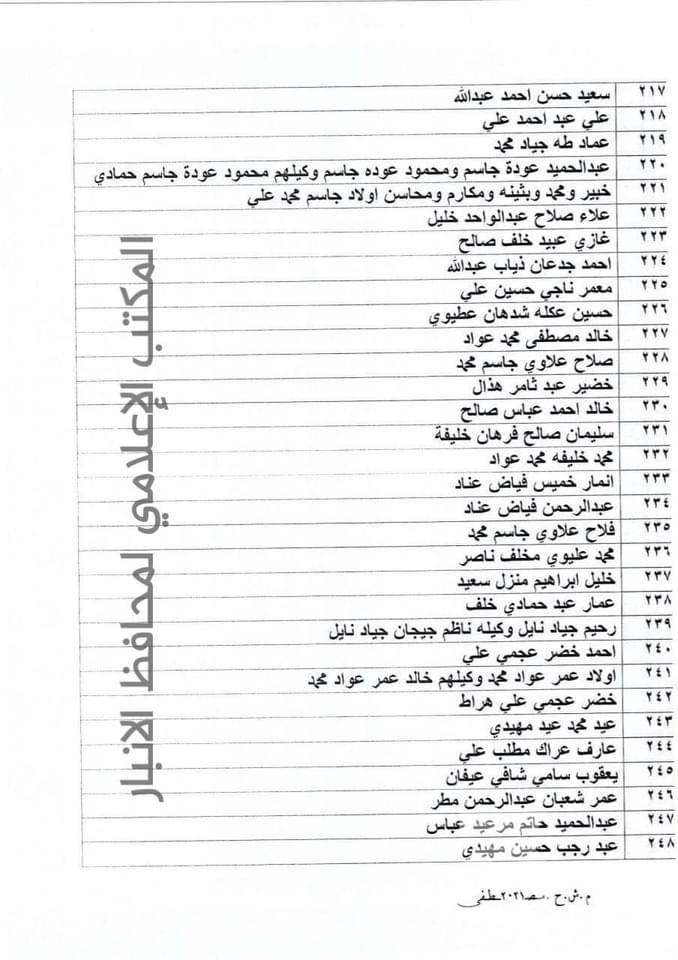 ٢١٧ سعيد حسن احمد عبدالله
٢١٨ علي عبد احمد علي
٢١٩ عماد طه جياد محمد
٢٢٠ عبدالحميد عودة جاسم ومحمود عوده جاسم وكيلهم محمود عودة جاسم حمادي
٢٢١ خبير ومحمد وبثينه ومكارم ومحاسن اولاد جاسم محمد علي
٢٢٢ علاء صلاح عبدالواحد خليل
٢٢٣ غازي عبيد خلف صالح
٢٢٤ احمد جدعان ذياب عبدالله
٢٢٥ معمر ناجي حسين علي
٢٢٦ حسين عكله شدهان عطيوي
٢٢٧ خالد مصطفى محمد عواد
٢٢٨ صلاح علاوي جاسم محمد
٢٢٩ خضير عبد ثامر هذال
٢٣٠ خالد احمد عباس صالح
٢٣١ سليمان صالح فرهان خليفة
٢٣٢ محمد خليفه محمد عواد
٢٣٣ انمار خميس فياض عناد
٢٣٤ عبدالرحمن فياض عناد
٢٣٥ فلاح علاوي جاسم محمد
٢٣٦ محمد عليوي مخلف ناصر
٢٣٧ خليل ابراهيم منزل سعيد
٢٣٨ عمار عبد حمادي خلف
٢٣٩ رحيم جياد نايل وكيله ناظم جيجان جياد نايل
٢٤٠ احمد خضر عجمي علي
٢٤١ اولاد عمر عواد محمد وكيلهم خالد عمر عواد محمد
٢٤٢ خضر عجمي علي هراط
٢٤٣ عيد محمد عيد مهيدي
٢٤٤ عارف عراك مطلب علي
٢٤٥ يعقوب سامي شافي عيفان
٢٤٦ عمر شعبان عبدالرحمن مطر
٢٤٧ عبدالحميد حاتم مرعيد عباس
٢٤٨ عبد رجب حسين مهيدي
م.ش.ح.مصـ٢٠٢١ـطفى
المكتب الإعلامي لمحافظ الانبار